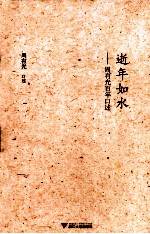 逝年如水
——周有光百年口述
周有光 口述